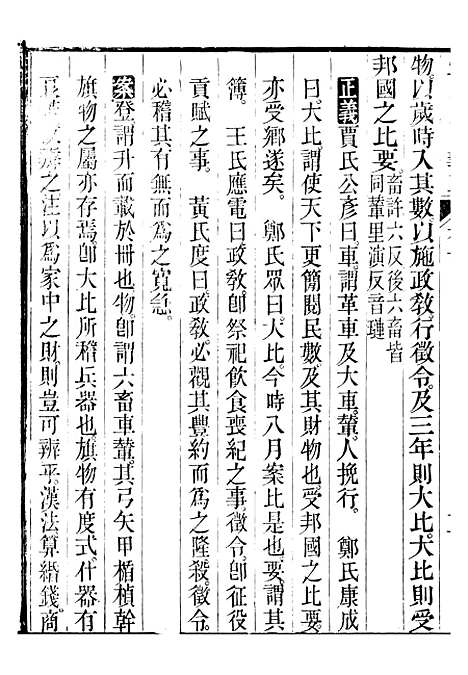 物以歲時入其數以施政敎行徵令及三年則大比大比則受
邦國之比要畜許六反後六畜皆
同輦里演反音璉
正義賈氏公彥曰車謂革車及大車輦人挽行。鄭氏康成
曰大比謂使天下更簡閱民數及其財物也受邦國之比要
亦受鄉遂矣。鄭氏眾曰大比今時八月案比是也要謂其
簿。王氏應電曰政敎卽祭祀飮食喪紀之事徵令卽征役
貢賦之事。黃氏度曰政敎必觀其豐約而爲之隆殺徵令
必稽其有無而爲之寬急。
案登謂升而載於冊也物卽謂六畜車輦其弓矢甲楯楨幹
旗物之屬亦存焉卽大比所稽兵器也旗物有度式什器有
之注以爲家中之財則豈可辨乎漢法算緡錢商